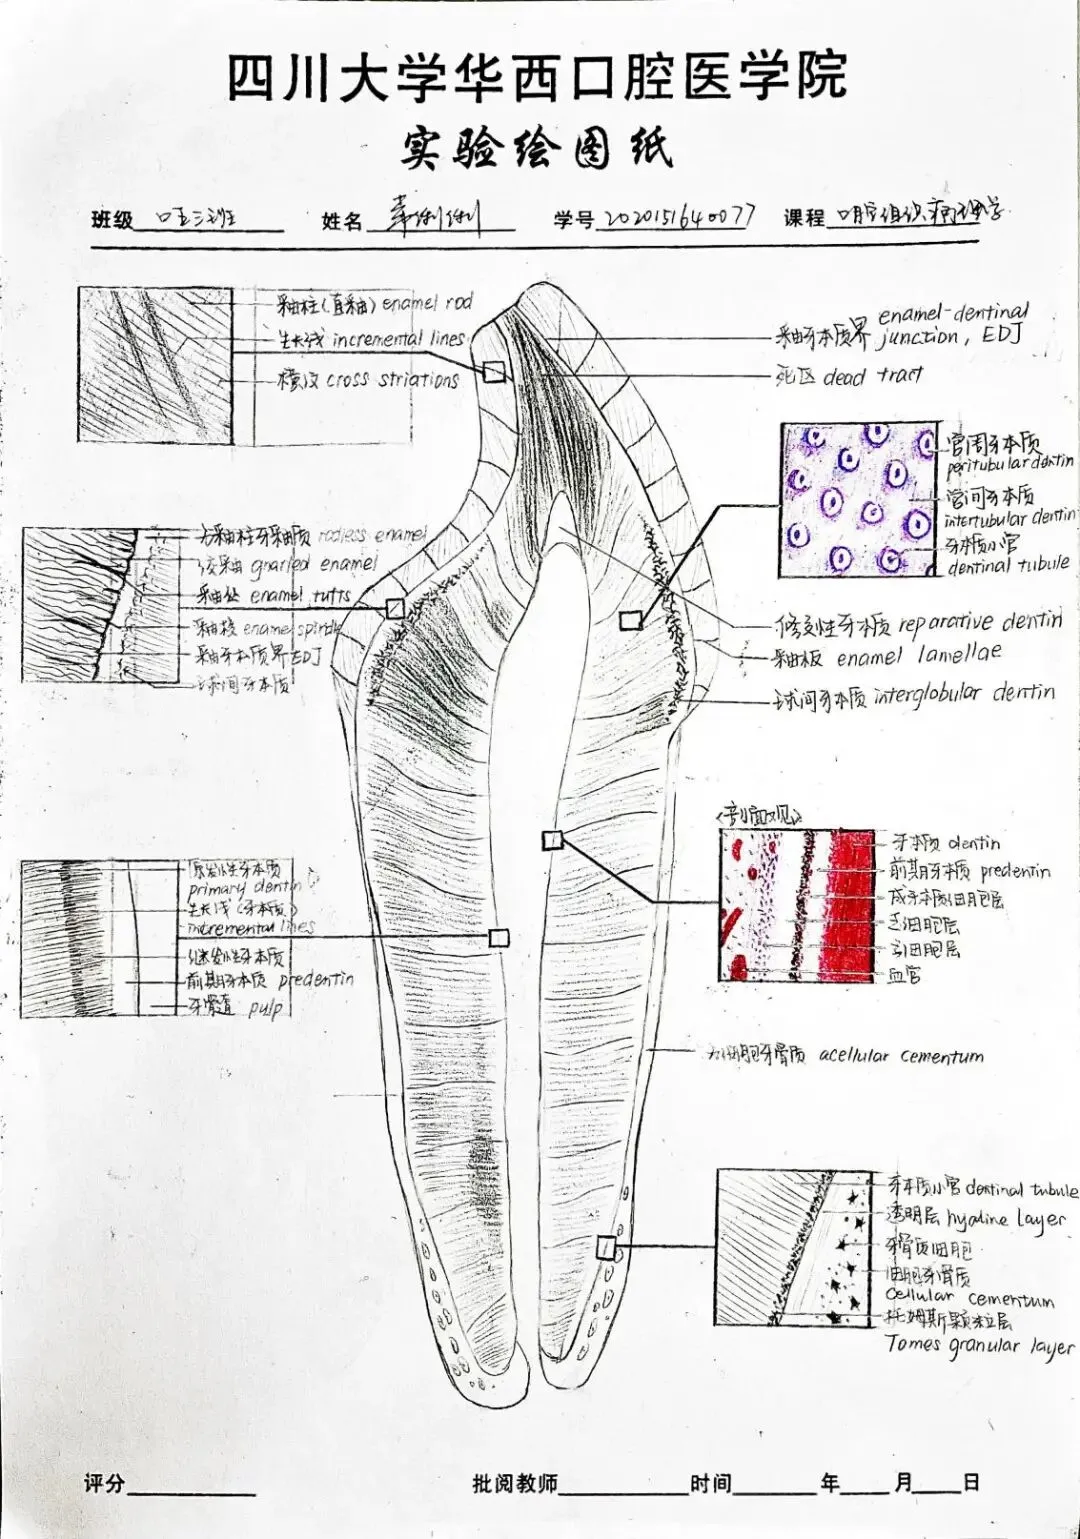 四川大学华西口腔医学院
实验绘图纸
班级 口五三班 姓名 学号 2020151640077 课程 口腔组织病理学
釉柱（直釉）enamel rod
生长线 incremental lines
横纹 cross striations
釉牙本质界 enamel-dentinal junction, EDJ
死区 dead tract
管周牙本质
peritubular dentin
管间牙本质
intertubular dentin
牙本质小管
dentinal tubule
无釉柱牙釉质 rodless enamel
绞釉 gnarled enamel
釉丛 enamel tufts
釉梭 enamel spindle
釉牙本质界 EDJ
球间牙本质
修复性牙本质 reparative dentin
釉板 enamel lamellae
球间牙本质 interglobular dentin
<剖面观>
牙本质 dentin
前期牙本质 predentin
成牙本质细胞层
乏细胞层
多细胞层
血管
原发性牙本质
primary dentin
生长线（牙本质）
incremental lines
继发性牙本质
前期牙本质 predentin
牙髓 pulp
无细胞牙骨质 acellular cementum
牙本质小管 dentinal tubule
透明层 hyaline layer
牙骨质细胞
细胞牙骨质
cellular cementum
托姆斯颗粒层
Tomes granular layer
评分 批阅教师 时间 年 月 日